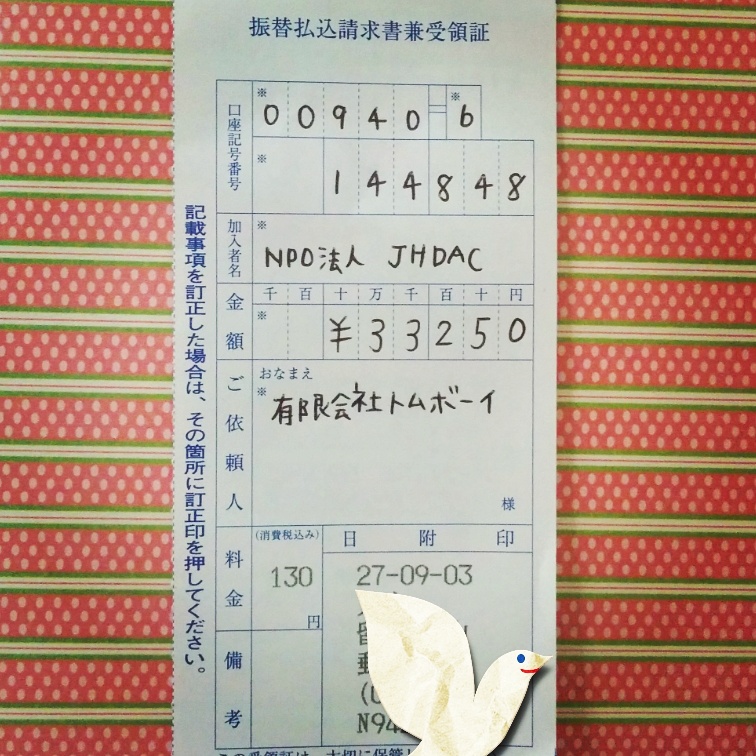 振替払込請求書兼受領証
口座記号番号
※ 00940 ※ 6
※ 144848
加入者名
※ NPO法人 JHDAC
金額
千 百 十 万 千 百 十 円
※ ¥33250
ご依頼人
おなまえ
※ 有限会社トムボーイ
様
料金
(消費税込み)
130
円
日 附 印
27-09-03
備考
N94
記載事項を訂正した場合は、その箇所に訂正印を押してください。